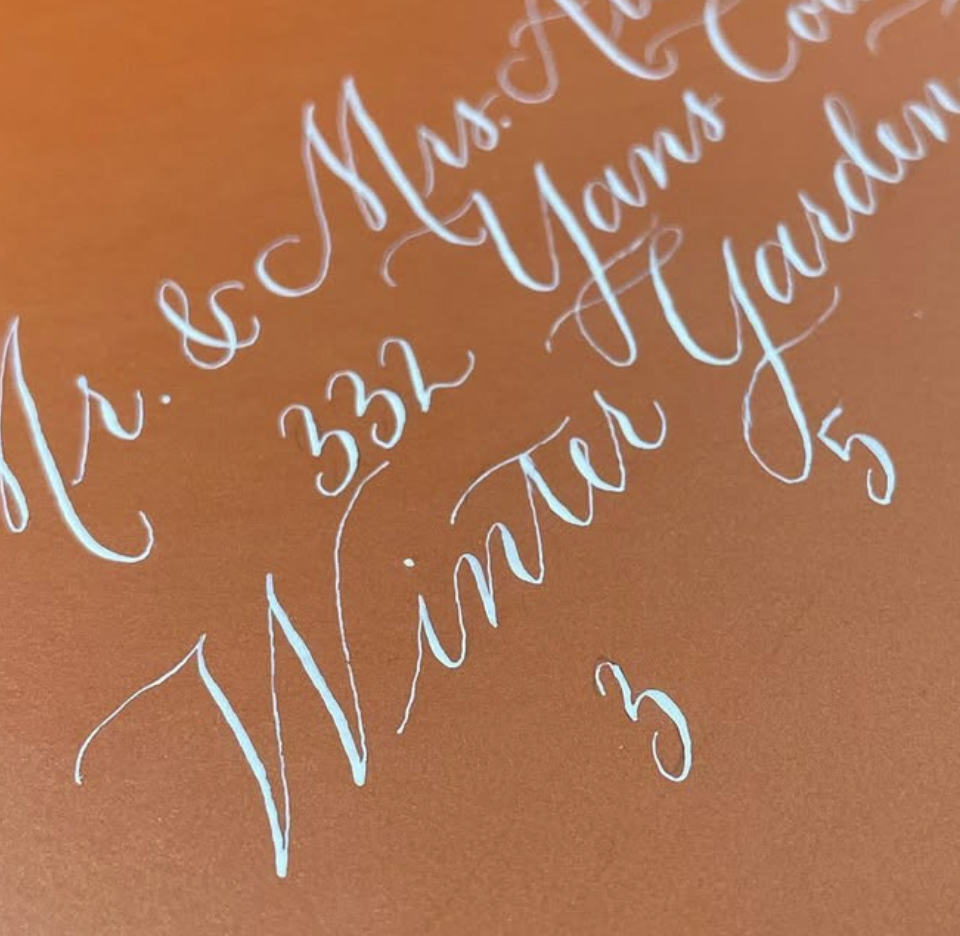 Mr. & Mrs.
332 Yans
Winter Garden
3 5